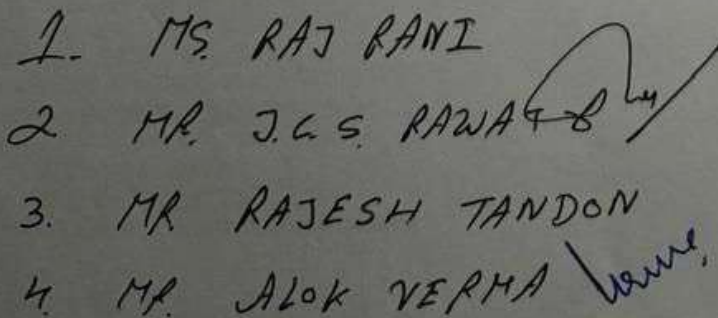 1. MS. RAJ RANI
2 MR. J.C.S. RAWAT
3. MR RAJESH TANDON
4. MR. ALOK VERMA